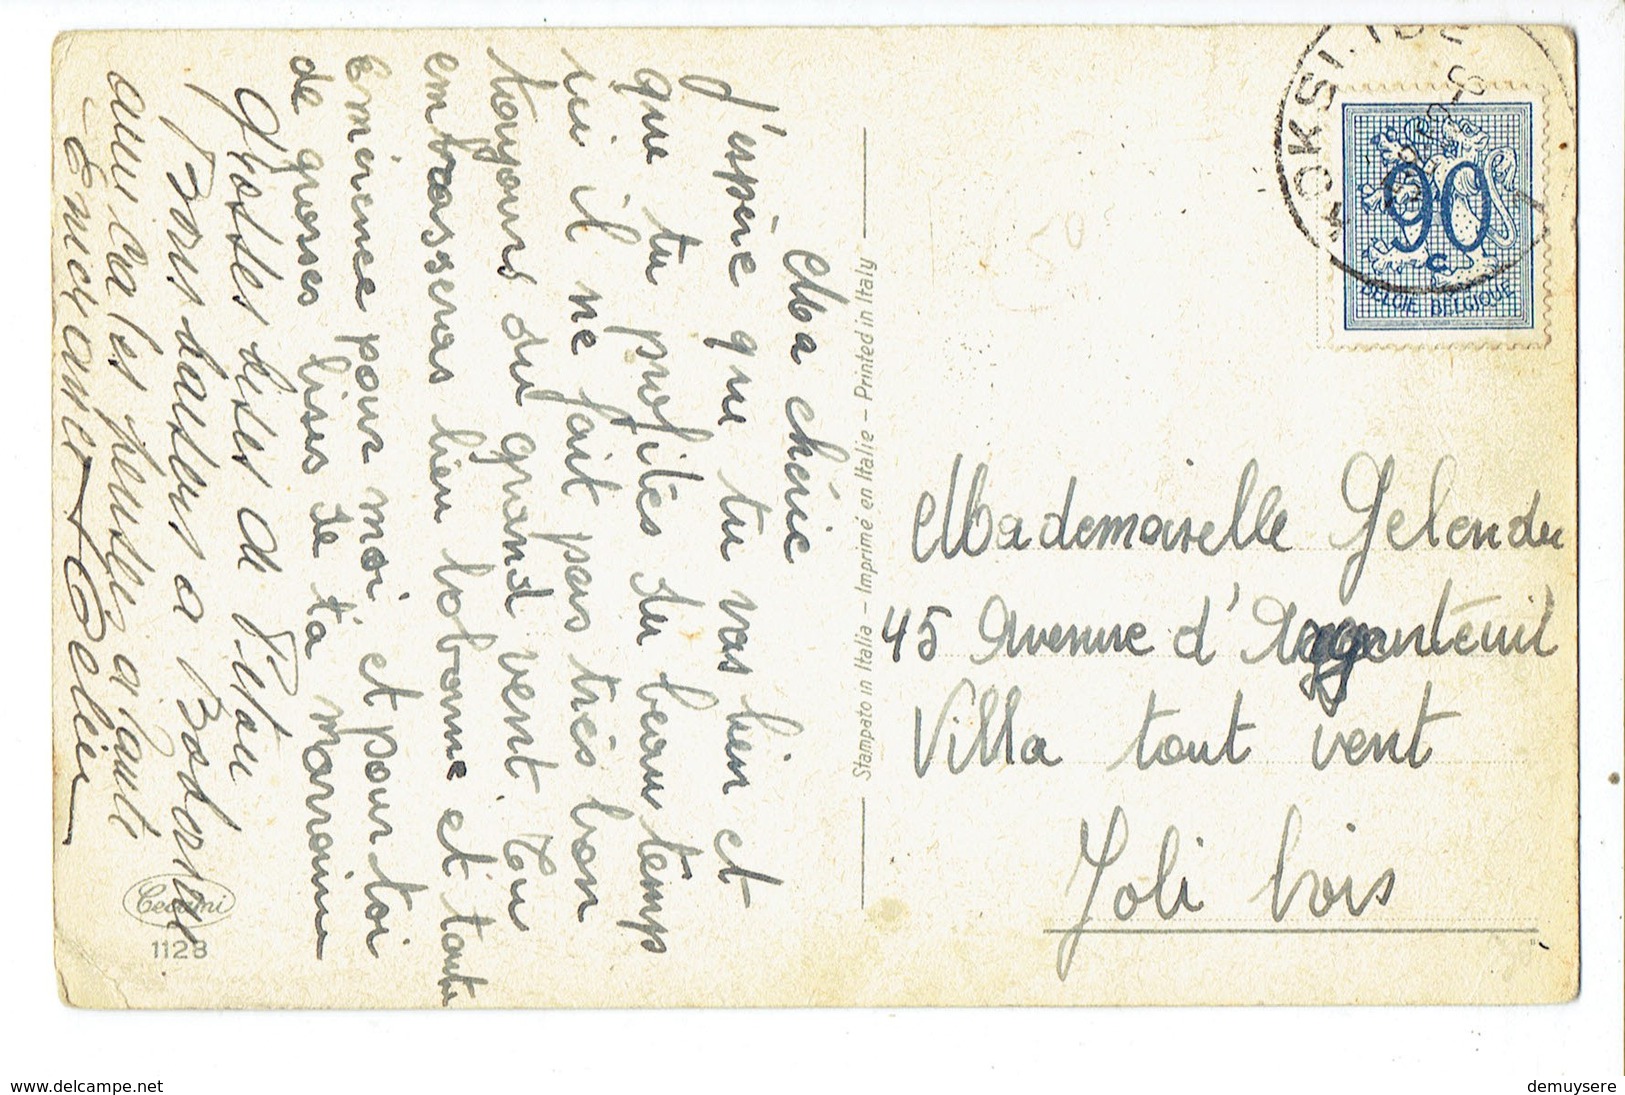 Ma chérie
J'espère que tu vas bien et
que tu profites du beau temps
ici il ne fait pas très bon
toujours du grand vent. Tu
embrasseras bien bobonne et tante
Emérence pour moi et pour toi
de grosses bises de ta marraine
Grosses bises de
Bons baisers a
Stampato in Italia – Imprimé en Italie – Printed in Italy
Cecami
1128
KOKSIJDE
90
c
BELGIE BELGIQUE
Mademoiselle
45 Avenue d'Argenteuil
Villa tout vent
Joli bois
www.delcampe.net
demuysere